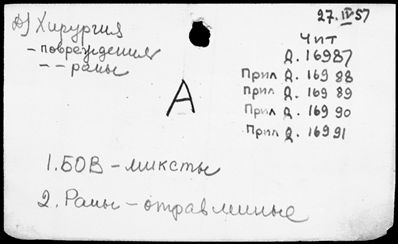 Д) Хирургия
- повреждения
- - раны
27.IV 57
Чит
Д. 16987
Прил Д. 169 88
Прил Д. 169 89
Прил Д. 169 90
Прил Д. 169 91
А
1. БОВ - миксты
2. Раны - отравленные